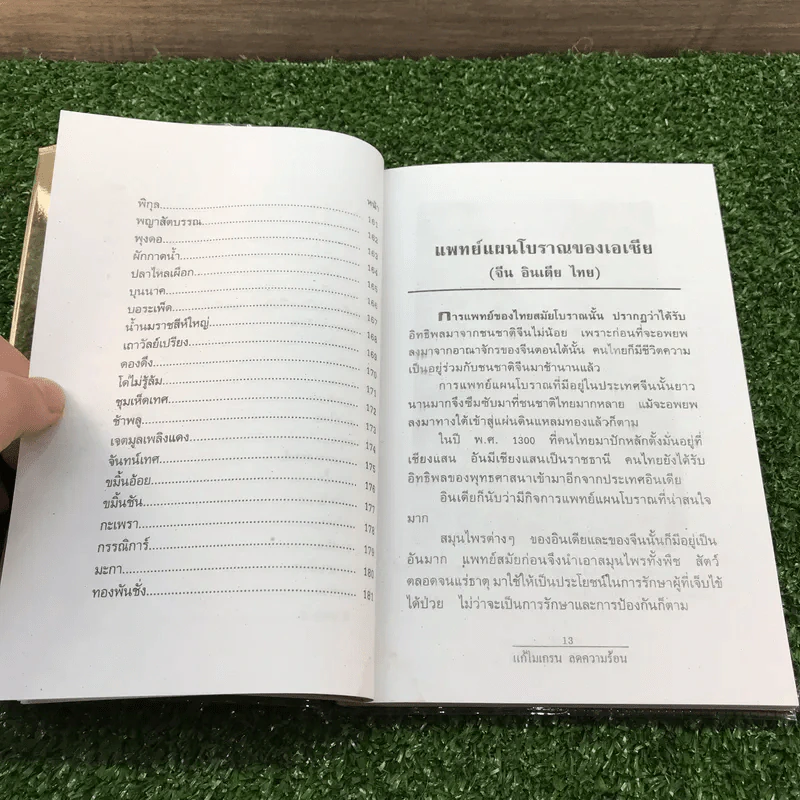 หน้า
พิกุล.......................................................... 161
พญาสัตบรรณ.......................................................... 162
พุงดอ.......................................................... 163
ผักกาดน้ำ.......................................................... 164
ปลาไหลเผือก.......................................................... 165
บุนนาค.......................................................... 166
บอระเพ็ด.......................................................... 167
น้ำนมราชสีห์ใหญ่.......................................................... 168
เถาวัลย์เปรียง.......................................................... 169
ดองดึง.......................................................... 170
โด่ไม่รู้ล้ม.......................................................... 171
ชุมเห็ดเทศ.......................................................... 172
ช้าพลู.......................................................... 173
เจตมูลเพลิงแดง.......................................................... 174
จันทน์เทศ.......................................................... 175
ขมิ้นอ้อย.......................................................... 176
ขมิ้นชัน.......................................................... 177
กะเพรา.......................................................... 178
กรรณิการ์.......................................................... 179
มะกา.......................................................... 180
ทองพันชั่ง.......................................................... 181
แพทย์แผนโบราณของเอเซีย
(จีน อินเดีย ไทย)
การแพทย์ของไทยสมัยโบราณนั้น ปรากฏว่าได้รับ
อิทธิพลมาจากชนชาติจีนไม่น้อย เพราะก่อนที่จะอพยพ
ลงมาจากอาณาจักรของจีนตอนใต้นั้น คนไทยก็มีชีวิตความ
เป็นอยู่ร่วมกับชนชาติจีนมาช้านานแล้ว
การแพทย์แผนโบราณที่มีอยู่ในประเทศจีนนั้นยาว
นานมากจึงซึมซับมาที่ชนชาติไทยมากหลาย แม้จะอพยพ
ลงมาทางใต้เข้าสู่แผ่นดินแหลมทองแล้วก็ตาม
ในปี พ.ศ. 1300 ที่คนไทยมาปักหลักตั้งมั่นอยู่ที่
เชียงแสน อันมีเชียงแสนเป็นราชธานี คนไทยยังได้รับ
อิทธิพลของพุทธศาสนาเข้ามาอีกจากประเทศอินเดีย
อินเดียก็นับว่ามีกิจการแพทย์แผนโบราณที่น่าสนใจ
มาก
สมุนไพรต่างๆ ของอินเดียและของจีนนั้นก็มีอยู่เป็น
อันมาก แพทย์สมัยก่อนจึงนำเอาสมุนไพรทั้งพืช สัตว์
ตลอดจนแร่ธาตุ มาใช้ให้เป็นประโยชน์ในการรักษาผู้ที่เจ็บไข้
ได้ป่วย ไม่ว่าจะเป็นการรักษาและการป้องกันก็ตาม
13
แก้ไมเกรน ลดความร้อน